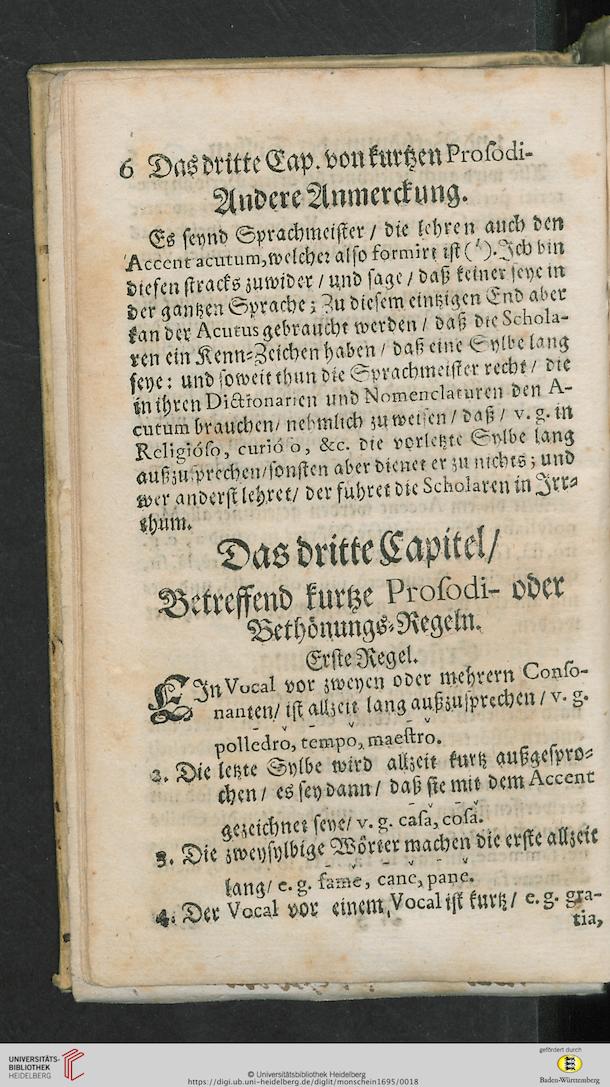 6 Das dritte Cap. von kurtzen Prosodi-
Andere Anmerckung.
Es seynd Sprachmeister / die lehren auch den
Accent acutum, welcher also formirt ist (´). Ich bin
diesen stracks zuwider / und sage / daß keiner seye in
der gantzen Sprache; Zu diesem eintzigen End aber
kan der Acutus gebraucht werden / daß die Schola-
ren ein Kenn-Zeichen haben / daß eine Sylbe lang
seye: und soweit thun die Sprachmeister recht / die
in ihren Dictionarien und Nomenclaturen den A-
cutum brauchen / nehmlich zu weisen / daß / v. g. in
Religióso, curióso, &c. die vorletzte Sylbe lang
außzusprechen / sonsten aber dienet er zu nichts; und
wer anderst lehret / der führet die Scholaren in Irr-
thum.
Das dritte Capitel /
Betreffend kurtze Prosodi- oder
Bethönungs-Regeln.
Erste Regel.
EIn Vocal vor zweyen oder mehrern Conso-
nanten / ist allzeit lang außzusprechen / v. g.
pollēdrŏ, tēmpŏ, maēstrŏ.
2. Die letzte Sylbe wird allzeit kurtz außgespro-
chen / es sey dann / daß sie mit dem Accent
gezeichnet seye / v. g. cāsă, cōsă.
3. Die zweysylbige Wörter machen die erste allzeit
lang / e. g. fāmĕ, cānĕ, pānĕ.
4. Der Vocal vor einem Vocal ist kurtz / e. g. gra-
tia,
UNIVERSITÄTS-
BIBLIOTHEK
HEIDELBERG
© Universitätsbibliothek Heidelberg
https://digi.ub.uni-heidelberg.de/diglit/monschein1695/0018
gefördert durch
Baden-Württemberg